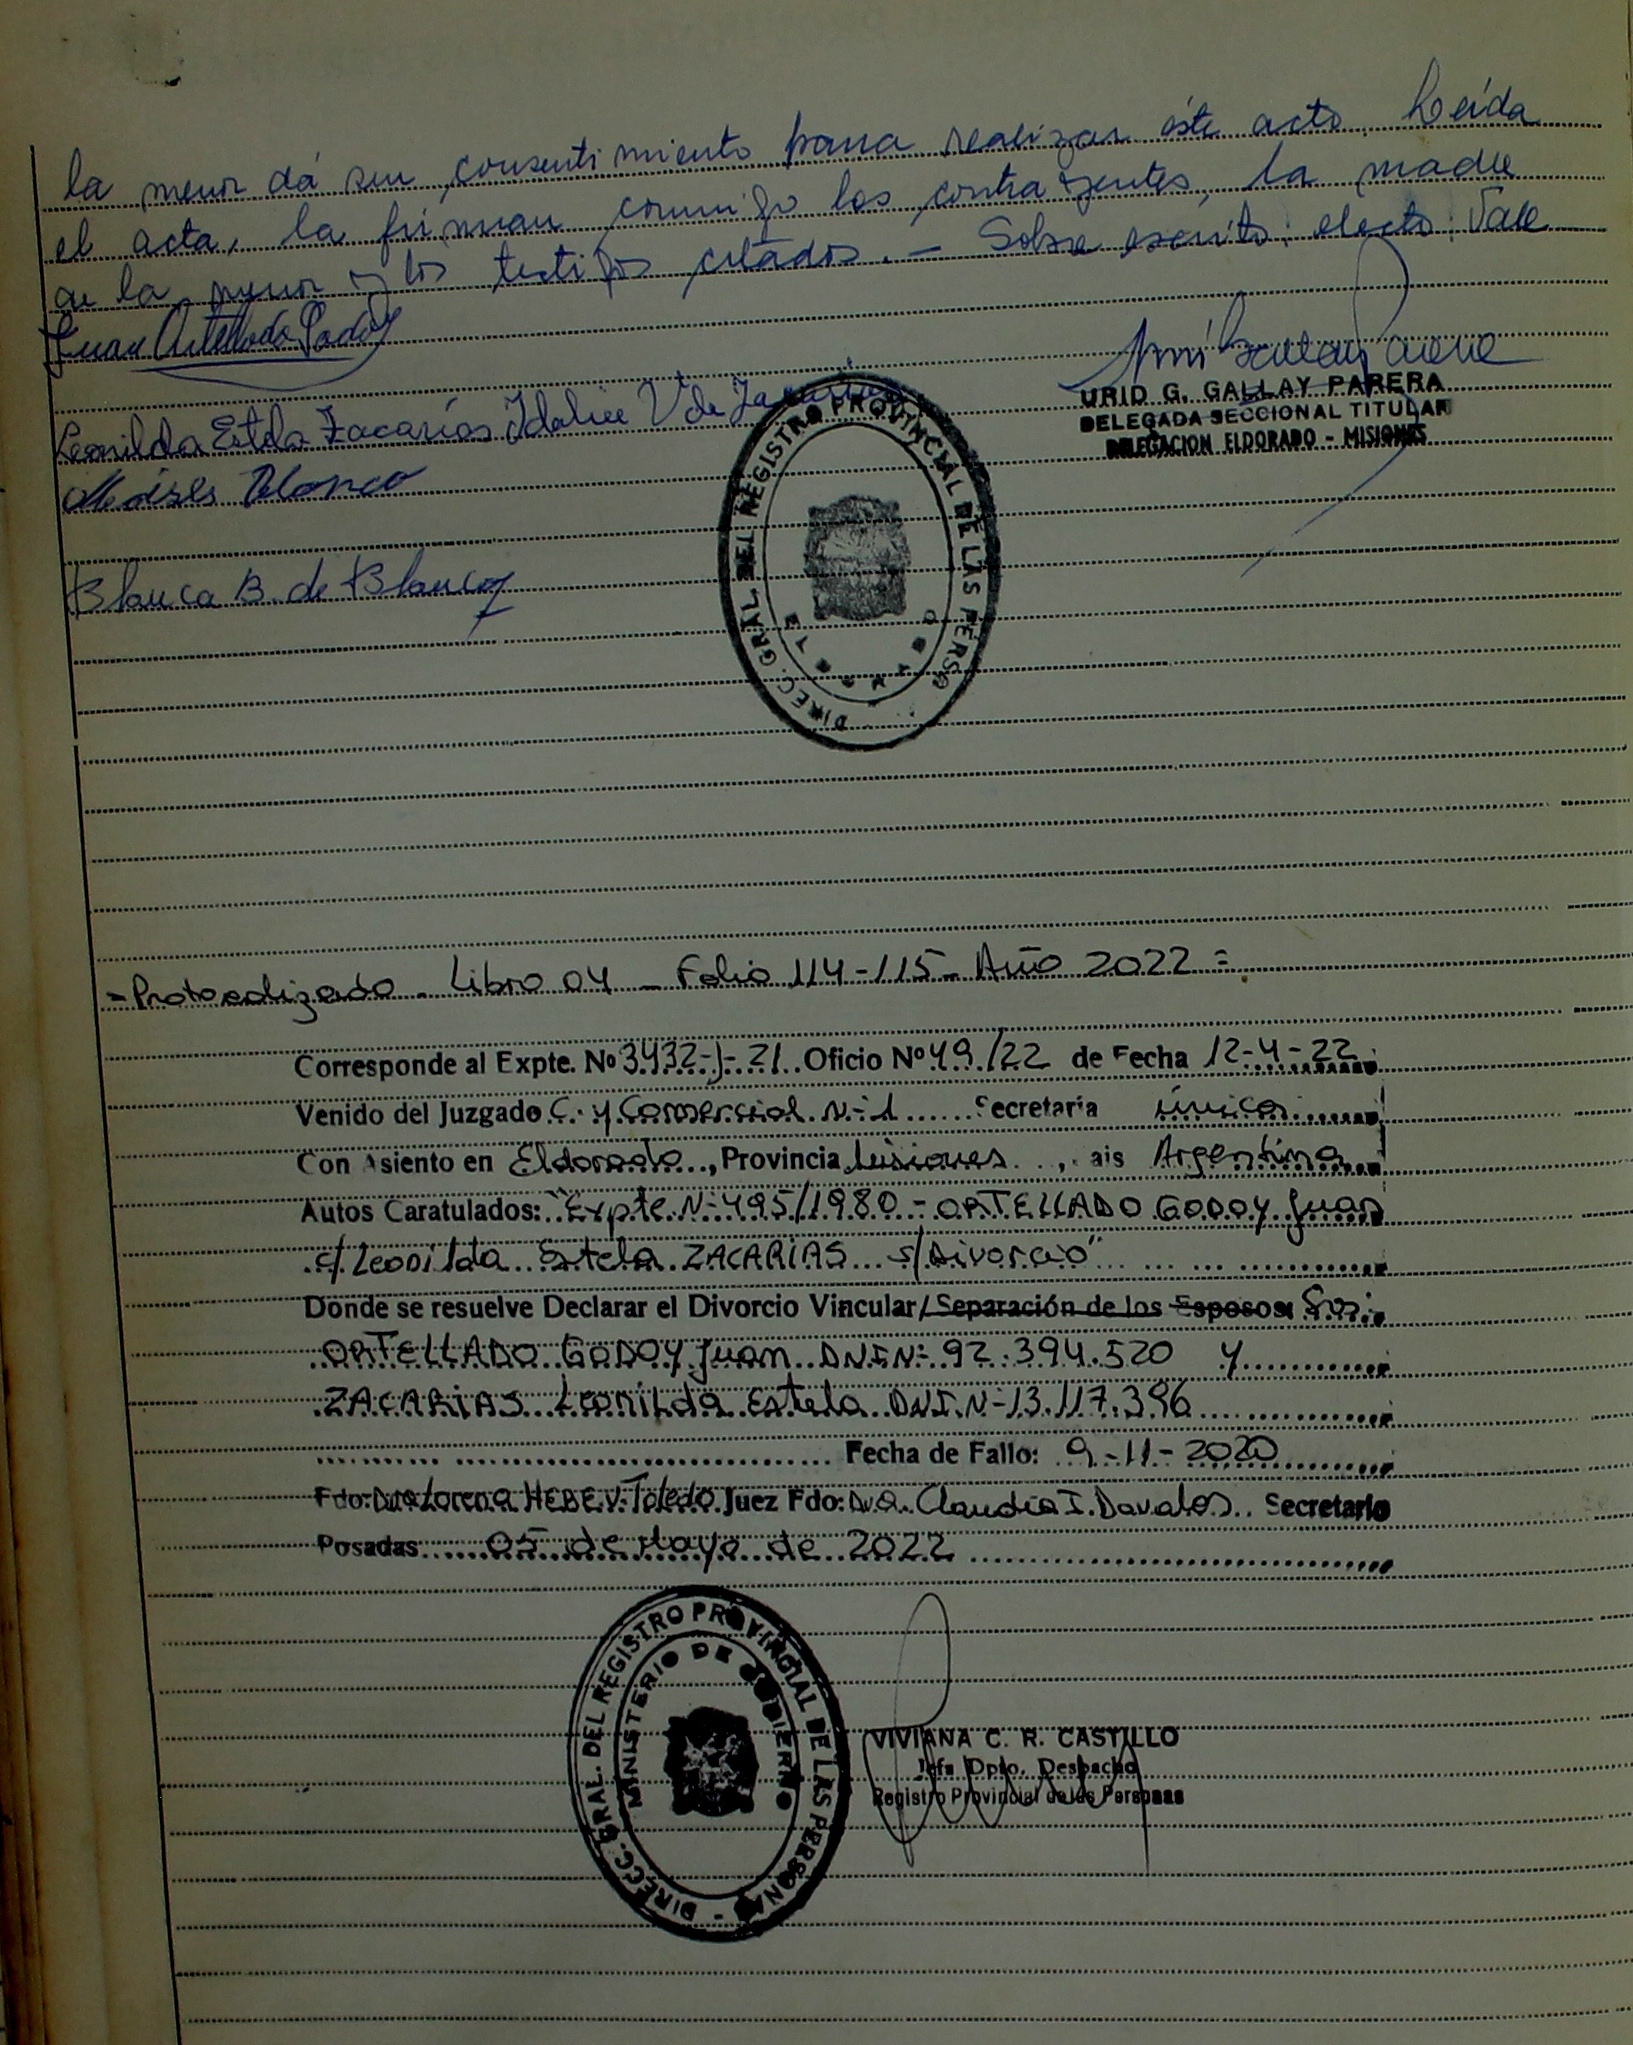 la menor dá su consentimiento para realizar éste acto. Leída
el acta, la firman conmigo los contrayentes, la madre
de la menor y los testigos citados. - Sobre escrito: electo: Vale
Juan Ortellado Godoy
URID G. GALLAY PARERA
DELEGADA SECCIONAL TITULAR
DELEGACION ELDORADO - MISIONES
Leonilda Estela Zacarías Idalia V de Zacarías
Moises Blanco
Blanca B. de Blanco
DIRECC. GRAL. DEL REGISTRO PROVINCIAL DE LAS PERSO
= Protocolizado - Libro 04 - Folio 114-115 - Año 2022 =
Corresponde al Expte. Nº 3432-J-21 Oficio Nº 49/22 de Fecha 12-4-22
Venido del Juzgado C. y Comercial N-1 Secretaría única
Con Asiento en Eldorado, Provincia Misiones, ais Argentina
Autos Caratulados: "Expte N- 495/1980 - ORTELLADO GODOY Juan
c/ Leonilda Estela ZACARIAS s/Divorcio"
Donde se resuelve Declarar el Divorcio Vincular/Separación de los Esposos
ORTELLADO GODOY Juan DNI N- 92.394.520 y
ZACARIAS Leonilda Estela DNI. N- 13.117.396
Fecha de Fallo: 9-11-2020
Fdo: Dra Lorena HEBE V. Toledo Juez Fdo: Dra. Claudia I. Davalos Secretario
Posadas 05 de Mayo de 2022
DIRECC. GRAL. DEL REGISTRO PROVINCIAL DE LAS PERSONA
MINISTERIO DE GOBIERNO
VIVIANA C. R. CASTILLO
Jefa Dpto. Despacho
Registro Provincial de las Personas